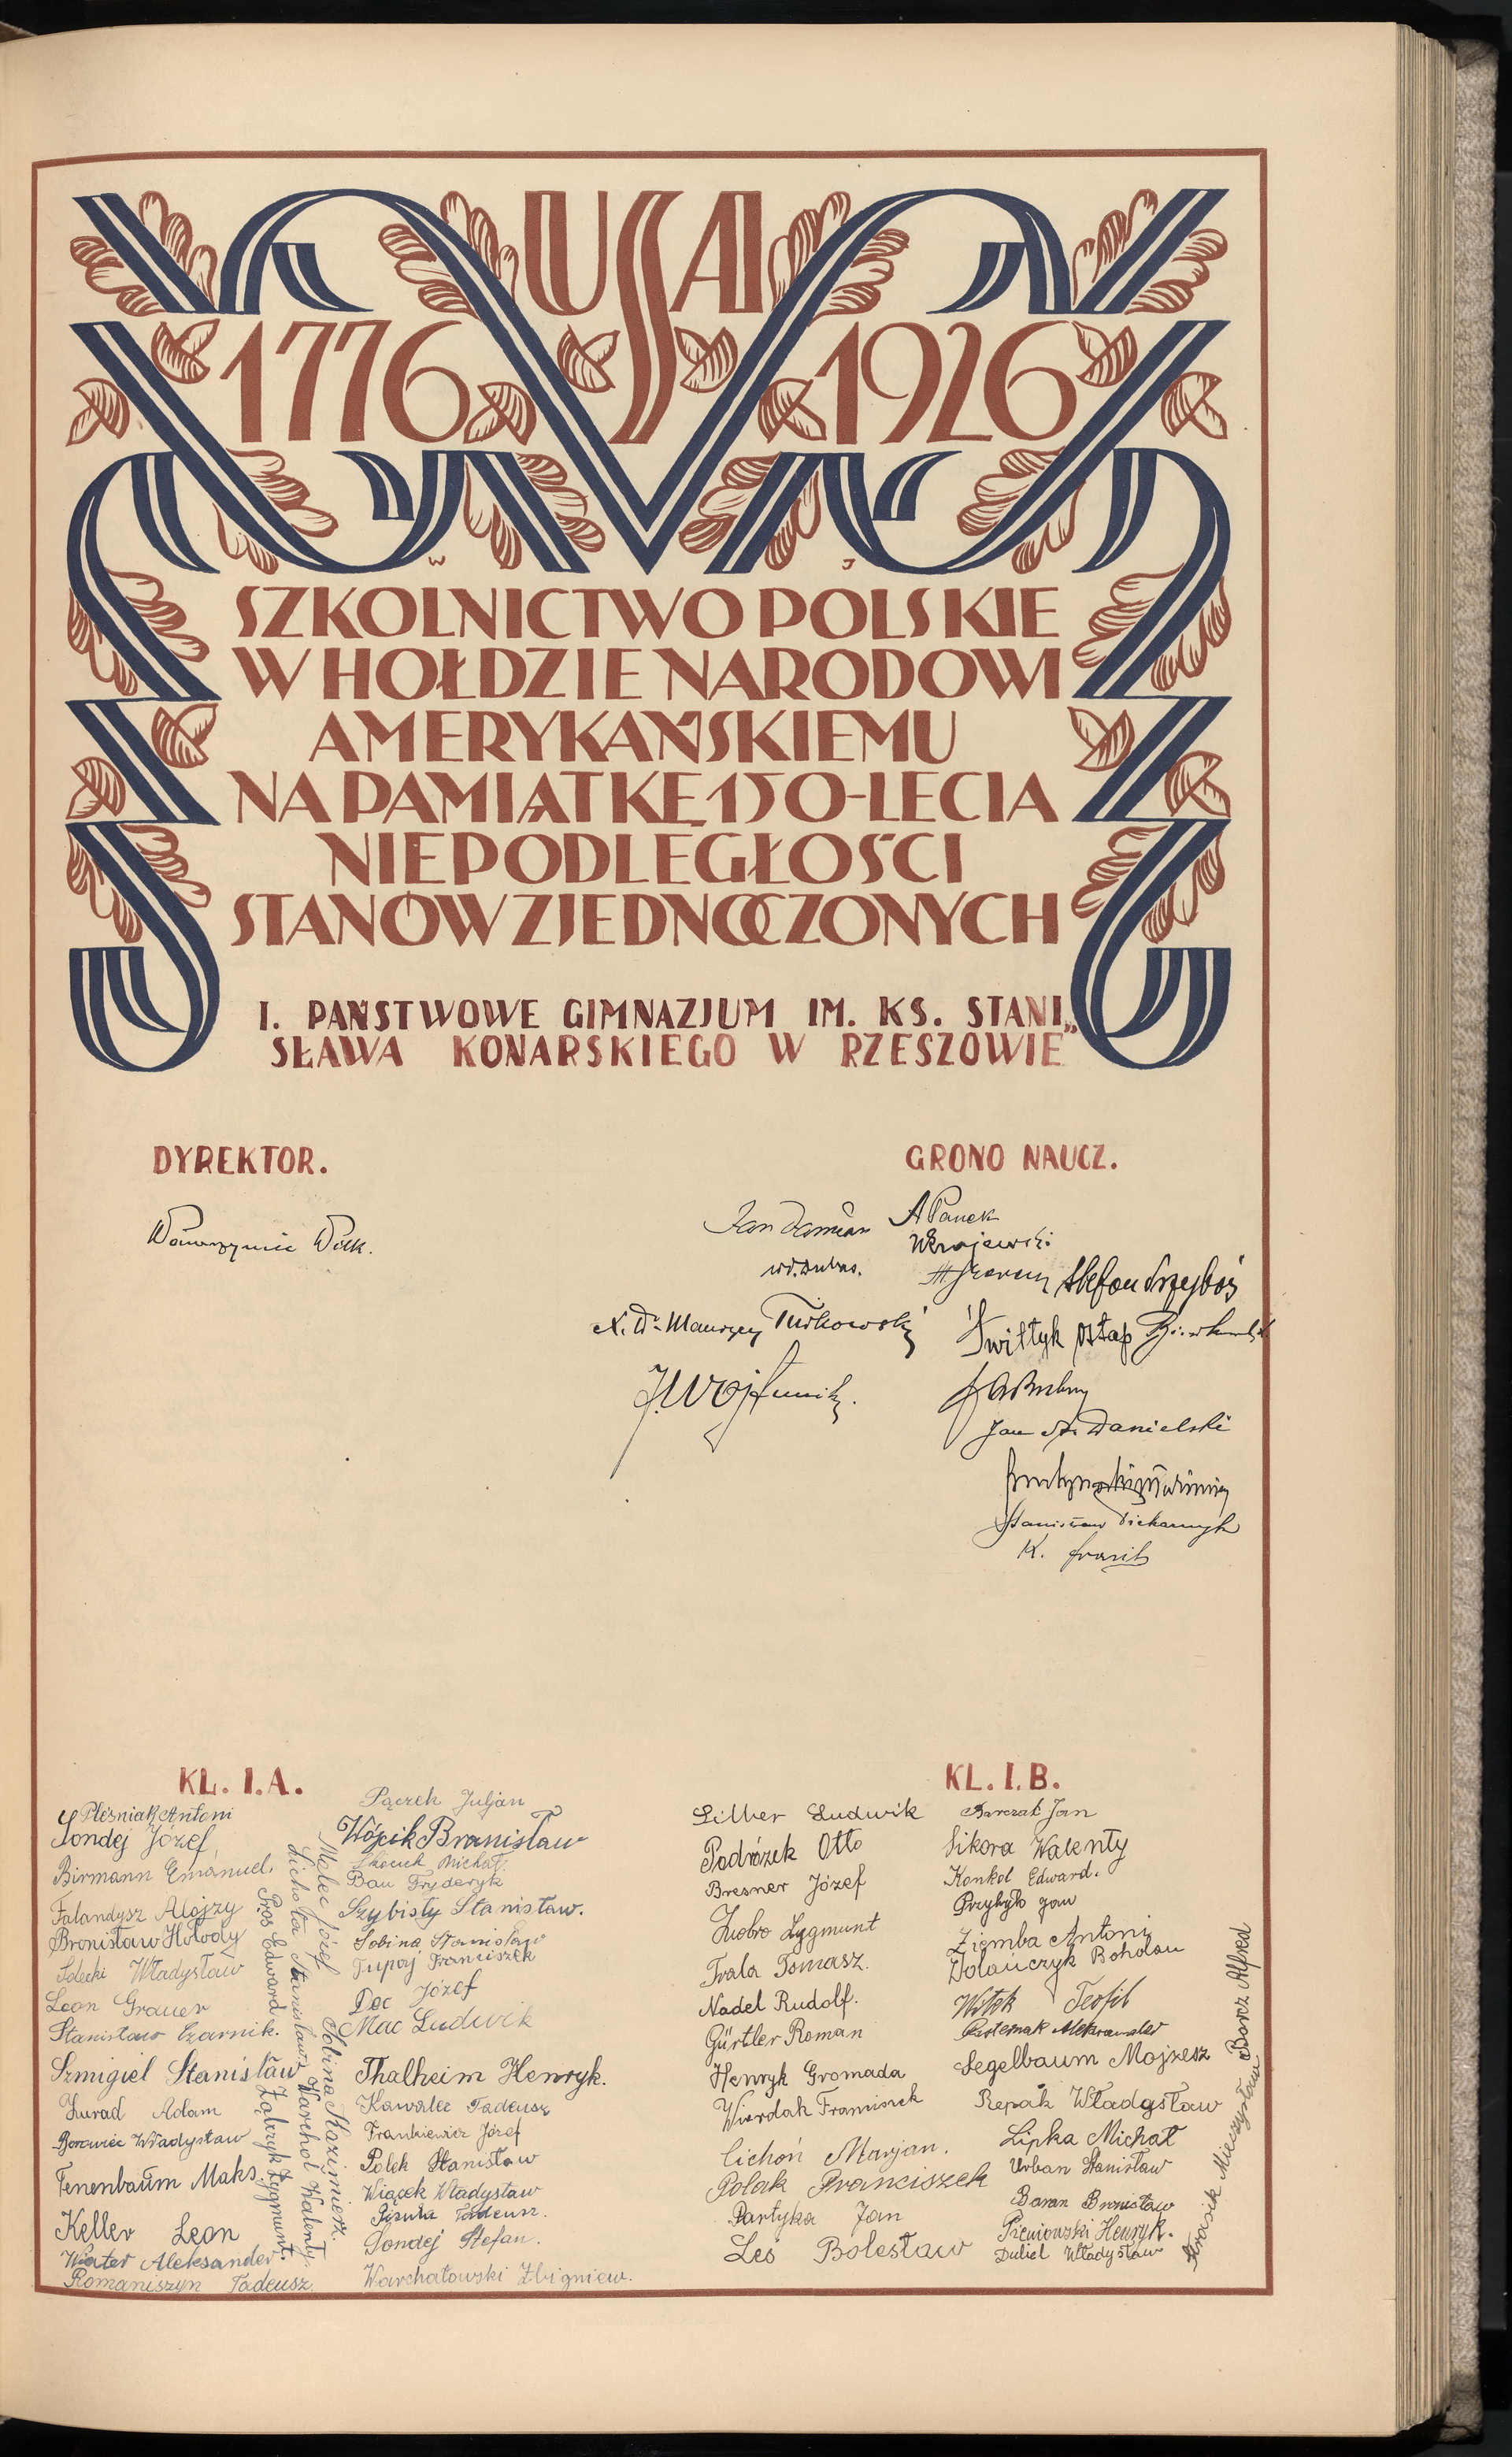 USA
1776 1926
W J
SZKOLNICTWO POLSKIE
W HOŁDZIE NARODOWI
AMERYKAŃSKIEMU
NA PAMIĄTKĘ 150-LECIA
NIEPODLEGŁOŚCI
STANÓW ZJEDNOCZONYCH
I. PAŃSTWOWE GIMNAZJUM IM. KS. STANI„
SŁAWA KONARSKIEGO W RZESZOWIE
DYREKTOR.
Wawrzyniec Wilk.
GRONO NAUCZ.
Jan Damian
A Panek
WKrajewski
Stefan Przyboś
X. Dr. Maurycy Turkowski
Świstyk Ostap
Jan Danielski
Stanisław
K.
KL. I.A.
Pleśniak Antoni
Sondej Józef
Birmann Emanuel.
Falandysz Alojzy
Bronisław Hołody
Solecki Władysław
Leon Grauer
Stanisław Czarnik.
Szmigiel Stanisław
Żurad Adam
Borowiec Władysław
Tenenbaum Maks.
Keller Leon
Wiater Aleksander
Romaniszyn Tadeusz.
Pros Edward
Ząbczyk Zygmunt.
Lichota Stanisław.
Warchoł Walenty.
Malec Józef
Sobina Kazimierz.
Pączek Juljan
Wójcik Bronisław
Skoczek Michał.
Bau Fryderyk
Szybisty Stanisław.
Sobina Stanisław
Tupaj Franciszek
Doc Józef
Mac Ludwik
Thalheim Henryk.
Kawalec Tadeusz
Frankiewicz Józef
Polek Stanisław
Wiącek Władysław
Pizuła Tadeusz.
Sondej Stefan.
Warchałowski Zbigniew.
KL. I.B.
Silber Ludwik
Podrózek Otto
Bresner Józef
Ziobro Zygmunt
Trala Tomasz.
Nadel Rudolf.
Gürtler Roman
Henryk Gromada
Wierdak Franciszek
Cichoń Marjan.
Polak Franciszek
Partyka Jan
Leś Bolesław
Barczak Jan
Sikora Walenty
Konkol Edward.
Przybyło Jan
Ziemba Antoni
Wolańczyk Bohdan
Witek Teofil
Pasternak Aleksander
Segelbaum Mojżesz
Repak Władysław
Lipka Michał
Urban Stanisław
Baran Bronisław
Pieniowski Henryk.
Dubiel Władysław
Mieczysław.
Barcz Alfred